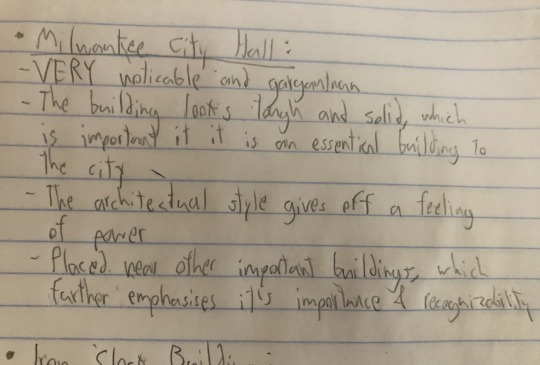 • Milwaukee City Hall:
- VERY noticable and gargantuan
- The building looks tough and solid, which
is important if it is an essential building to
the city
- The architectual style gives off a feeling
of power
- Placed near other important buildings, which
further emphasises it's importance & recognizability
• Iron Block Building: